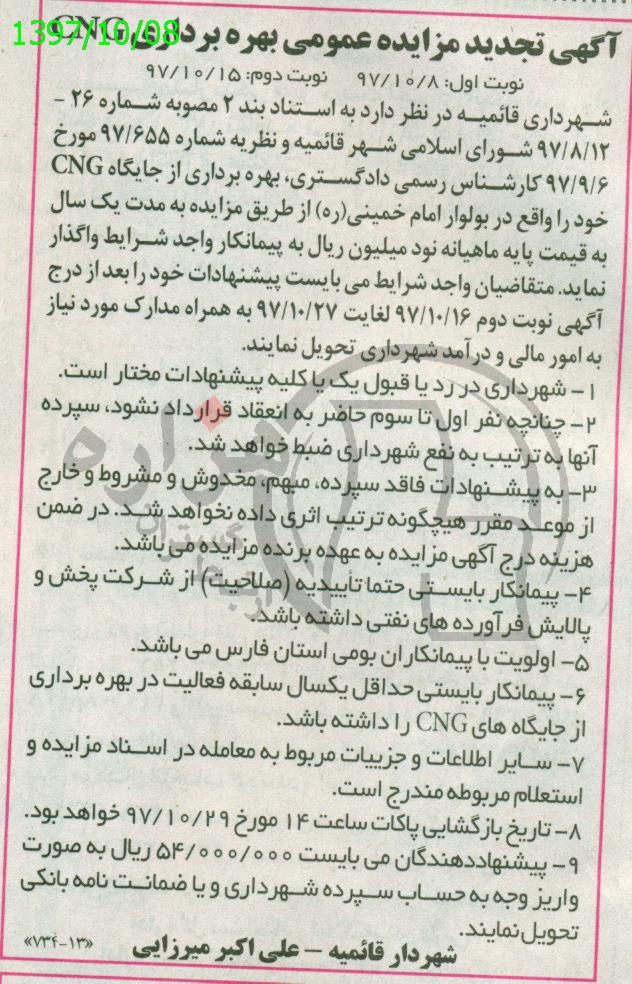 1397/10/08
آگهی تجدید مزایده عمومی بهره برداری CNG
نوبت اول: ۹۷/۱۰/۸ نوبت دوم: ۹۷/۱۰/۱۵
شهرداری قائمیه در نظر دارد به استناد بند ۲ مصوبه شماره ۲۶ -
۹۷/۸/۱۲ شورای اسلامی شهر قائمیه و نظریه شماره ۹۷/۶۵۵ مورخ
۹۷/۹/۶ کارشناس رسمی دادگستری، بهره برداری از جایگاه CNG
خود را واقع در بولوار امام خمینی(ره) از طریق مزایده به مدت یک سال
به قیمت پایه ماهیانه نود میلیون ریال به پیمانکار واجد شرایط واگذار
نماید. متقاضیان واجد شرایط می بایست پیشنهادات خود را بعد از درج
آگهی نوبت دوم ۹۷/۱۰/۱۶ لغایت ۹۷/۱۰/۲۷ به همراه مدارک مورد نیاز
به امور مالی و درآمد شهرداری تحویل نمایند.
۱- شهرداری در رد یا قبول یک یا کلیه پیشنهادات مختار است.
۲- چنانچه نفر اول تا سوم حاضر به انعقاد قرارداد نشود، سپرده
آنها به ترتیب به نفع شهرداری ضبط خواهد شد.
۳- به پیشنهادات فاقد سپرده، مبهم، مخدوش و مشروط و خارج
از موعد مقرر هیچگونه ترتیب اثری داده نخواهد شد. در ضمن
هزینه درج آگهی مزایده به عهده برنده مزایده می باشد.
۴- پیمانکار بایستی حتما تأییدیه (صلاحیت) از شرکت پخش و
پالایش فرآورده های نفتی داشته باشد.
۵- اولویت با پیمانکاران بومی استان فارس می باشد.
۶- پیمانکار بایستی حداقل یکسال سابقه فعالیت در بهره برداری
از جایگاه های CNG را داشته باشد.
۷- سایر اطلاعات و جزییات مربوط به معامله در اسناد مزایده و
استعلام مربوطه مندرج است.
۸- تاریخ بازگشایی پاکات ساعت ۱۴ مورخ ۹۷/۱۰/۲۹ خواهد بود.
۹- پیشنهاددهندگان می بایست ۵۴/۰۰۰/۰۰۰ ریال به صورت
واریز وجه به حساب سپرده شهرداری و یا ضمانت نامه بانکی
تحویل نمایند.
شهردار قائمیه - علی اکبر میرزایی
«۷۳۴-۱۳»
هزاره